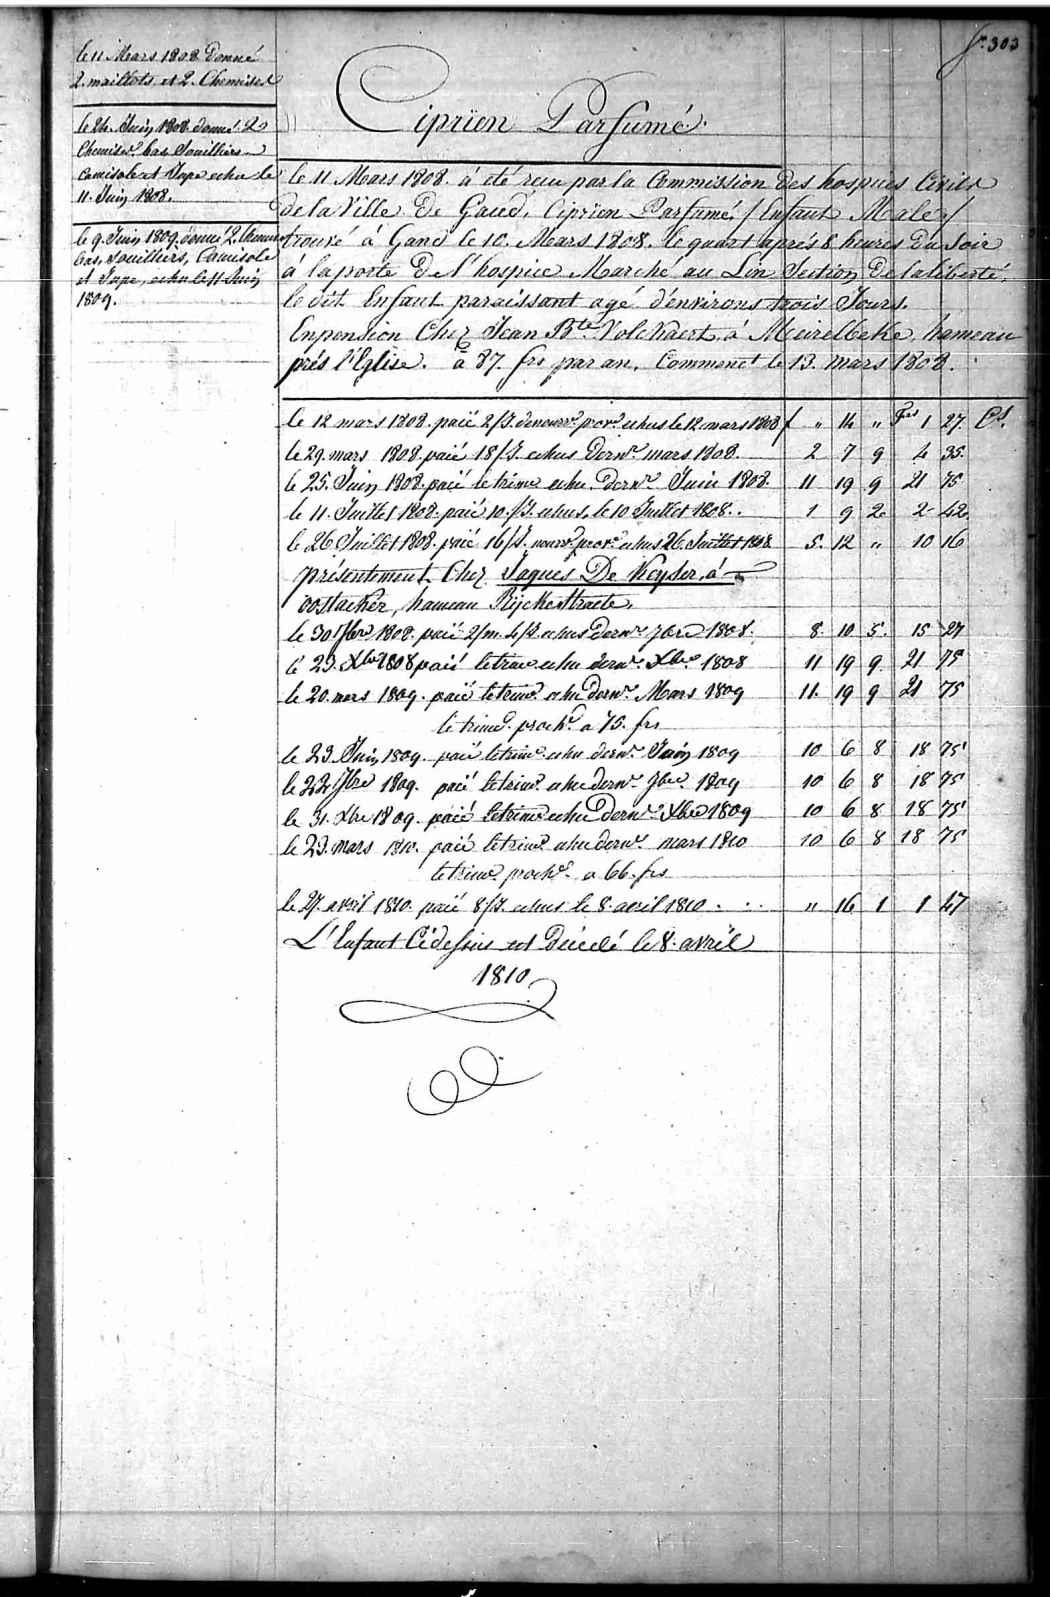 fo 303
le 11 Mars 1808 Donné
2. maillots et 2. Chemises
le 24. Juin 1808 donné 2
Chemises bas Souilliers
Camisole et Jupe echu le
11. Juin 1808.
le 9. Juin 1809. donné 2. Chemises
bas, souilliers, Camisole
et Jupe, echu le 11 Juin
1809.
Ciprien Parfumé
le 11 Mars 1808. à été recu par la Commission des hospices Civils
de la Ville De Gand, Ciprien Parfumé, / Enfant Male /
trouvé à Gand le 10. Mars 1808. le quart après 8 heures Du Soir
à la porte De l'hospice Marché au Lin Section De la liberté,
le dit Enfant paraissant agé d'environs trois Jours.
En pension Chez Jean Bte Volckaert, à Meirelbeke, hameau
près l'Eglise. à 87. frs par an. Commencé le 13. mars 1808.
le 12 mars 1808. paié 2/J. de nour. prov. echus le 12 mars 1808 f " 14 " Frs 1 27 Cs.
le 29. mars 1808. paié 18/J. echus dernr. mars 1808. 2 7 9 4 35
le 25. Juin 1808. paié le trime echu dernr. Juin 1808. 11 19 9 21 75
le 11. Juillet 1808. paié 10./J. echus, le 10 Juillet 1808. 1 9 2 2 42
le 26. Juillet 1808. paié 16/J. nour. prov. echus 26. Juillet 1808 5. 12 " 10 16
présentement Chez Jaques De Keyser, à
oostacker, hameau Rijckestraete,
le 30 7bre 1808. paié 2/m. 4/J. echus dernr. 7bre 1808. 8. 10 5. 15 27
le 23. Xbre 1808 paié le trime echu dernr. Xbre 1808 11 19 9 21 75
le 20. mars 1809. paié le trime. echu dernr. Mars 1809 11. 19 9 21 75
le trime. proch. a 75. frs
le 23 Juin 1809. paié le trime echu dernr. Juin 1809 10 6 8 18 75
le 22 7bre 1809. paié le trime. echu dernr. 7bre 1809 10 6 8 18 75
le 31. Xbre 1809. paié le trime echu dernr. Xbre 1809 10 6 8 18 75
le 23. mars 1810. paié le trime. echu dernr. mars 1810 10 6 8 18 75
le trime. proch. a 66. frs
le 27. avril 1810. paié 8/J. echus le 8. avril 1810 . . . " 16 1 1 47
L'Enfant Cidessus est Décedé le 8. avril
1810